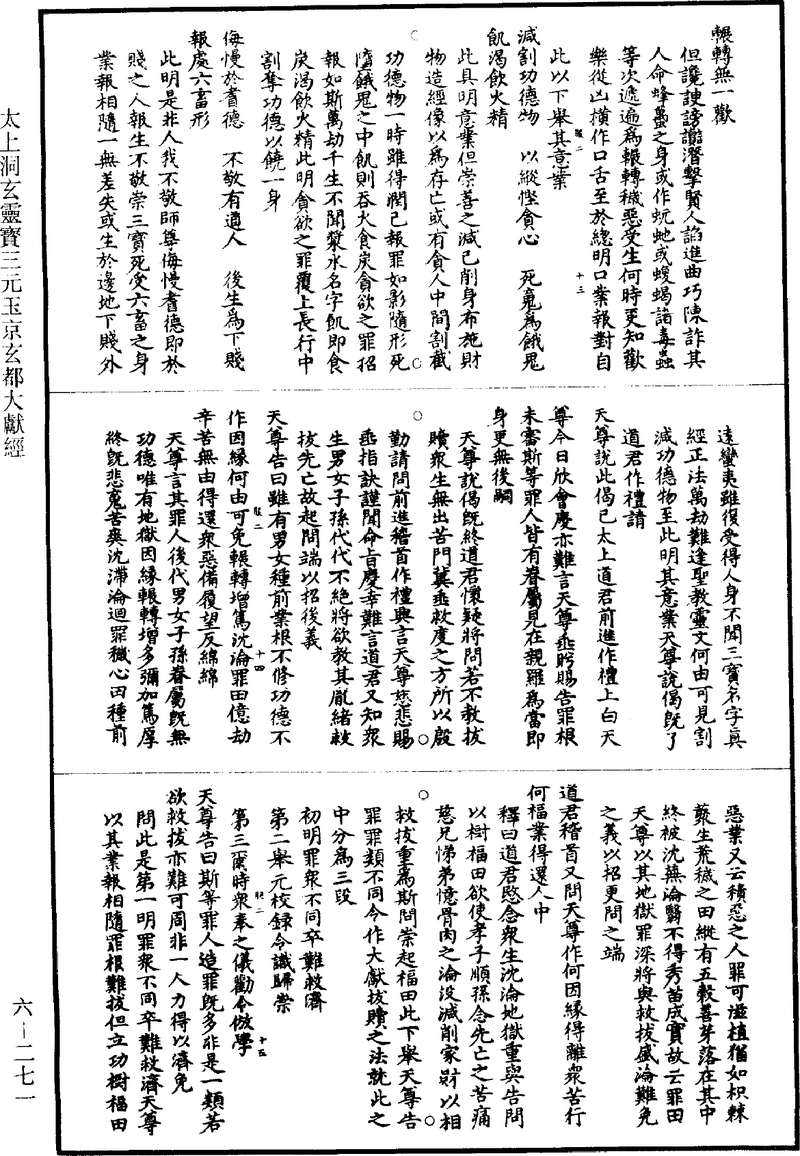 輾轉無一歡
但讒諛謗讟潛擊賢人諂進曲巧陳詐其
人命蜂蠆之身或作蚖虵或蝮蝎諸毒蟲
等次遞遍為輾轉穢惡受生何時更知歡
樂從凶橫作口舌至於總明口業報對自
此以下舉其意業
減割功德物 以縱慳貪心 死竟為餓鬼
飢渴飲火精
此具明意業但崇善之減己削身布施財
物造經像以為存亡或有貪人中間割截
功德物一時雖得潤己報罪如影隨形死
墮餓鬼之中飢則吞火食炭貪欲之罪招
報如斯萬劫千生不聞漿水名字飢即食
炭渴飲火精此明貪欲之罪覆上長行中
割奪功德以饒一身
侮慢於耆德 不敬有道人 後生為下賤
報處六畜形
此明是非人我不敬師尊侮慢耆德即於
賤之人報生不敬崇三寶死受六畜之身
業報相隨一無差失或生於邊地下賤外
遠蠻夷雖復受得人身不聞三寶名字真
經正法萬劫難逢聖教靈文何由可見割
減功德物至此明其意業天尊說偈既了
道君作禮請
天尊說此偈已太上道君前進作禮上白天
尊今日欣會慶亦難言天尊垂眄賜告罪根
未審斯等罪人皆有眷屬見在親羅為當即
身更無後嗣
天尊說偈既終道君懷疑將問若不救拔
贖眾生無出苦門冀垂救度之方所以殷
勤請問前進稽首作禮興言天尊慈悲賜
垂指訣謹聞命旨慶幸難言道君又知眾
生男女子孫代代不絕將欲教其胤緒救
拔先亡故起問端以招後義
天尊告曰雖有男女種前業根不修功德不
作因緣何由可免輾轉增篤沈淪罪田億劫
辛苦無由得還眾惡備履望反綿綿
天尊言其罪人後代男女子孫眷屬既無
功德唯有地獄因緣輾轉增多彌加篤厚
終既悲寃苦爽沈滯淪迴罪穢心因種前
惡業又云積惡之人罪可滋植猶如枳棘
藂生荒穢之田縱有五穀善芽落在其中
終被沈蕪淪翳不得秀苗成實故云罪田
天尊以其地獄罪深將與救拔盛淪難免
之義以招更問之端
道君稽首又問天尊作何因緣得離眾苦行
何福業得還人中
釋曰道君愍念眾生沈淪地獄重與告問
以樹福田欲使孝子順孫念先亡之苦痛
慈兄悌弟憶骨肉之淪沒減削家財以相
救拔重為斯問崇起福田此下舉天尊告
罪罪類不同今作大獻拔贖之法就此之
中分為三段
初明罪眾不同卒難救濟
第二舉元校錄令識歸崇
第三爾時眾奉之儀勸令倣學
天尊告曰斯等罪人造罪既多非是一類若
欲救拔亦難可周非一人力得以濟免
問此是第一明罪眾不同卒難救濟天尊
以其業報相隨罪根難拔但立功樹福田
太上洞玄靈寶三元玉京玄都大獻經
六—二七一